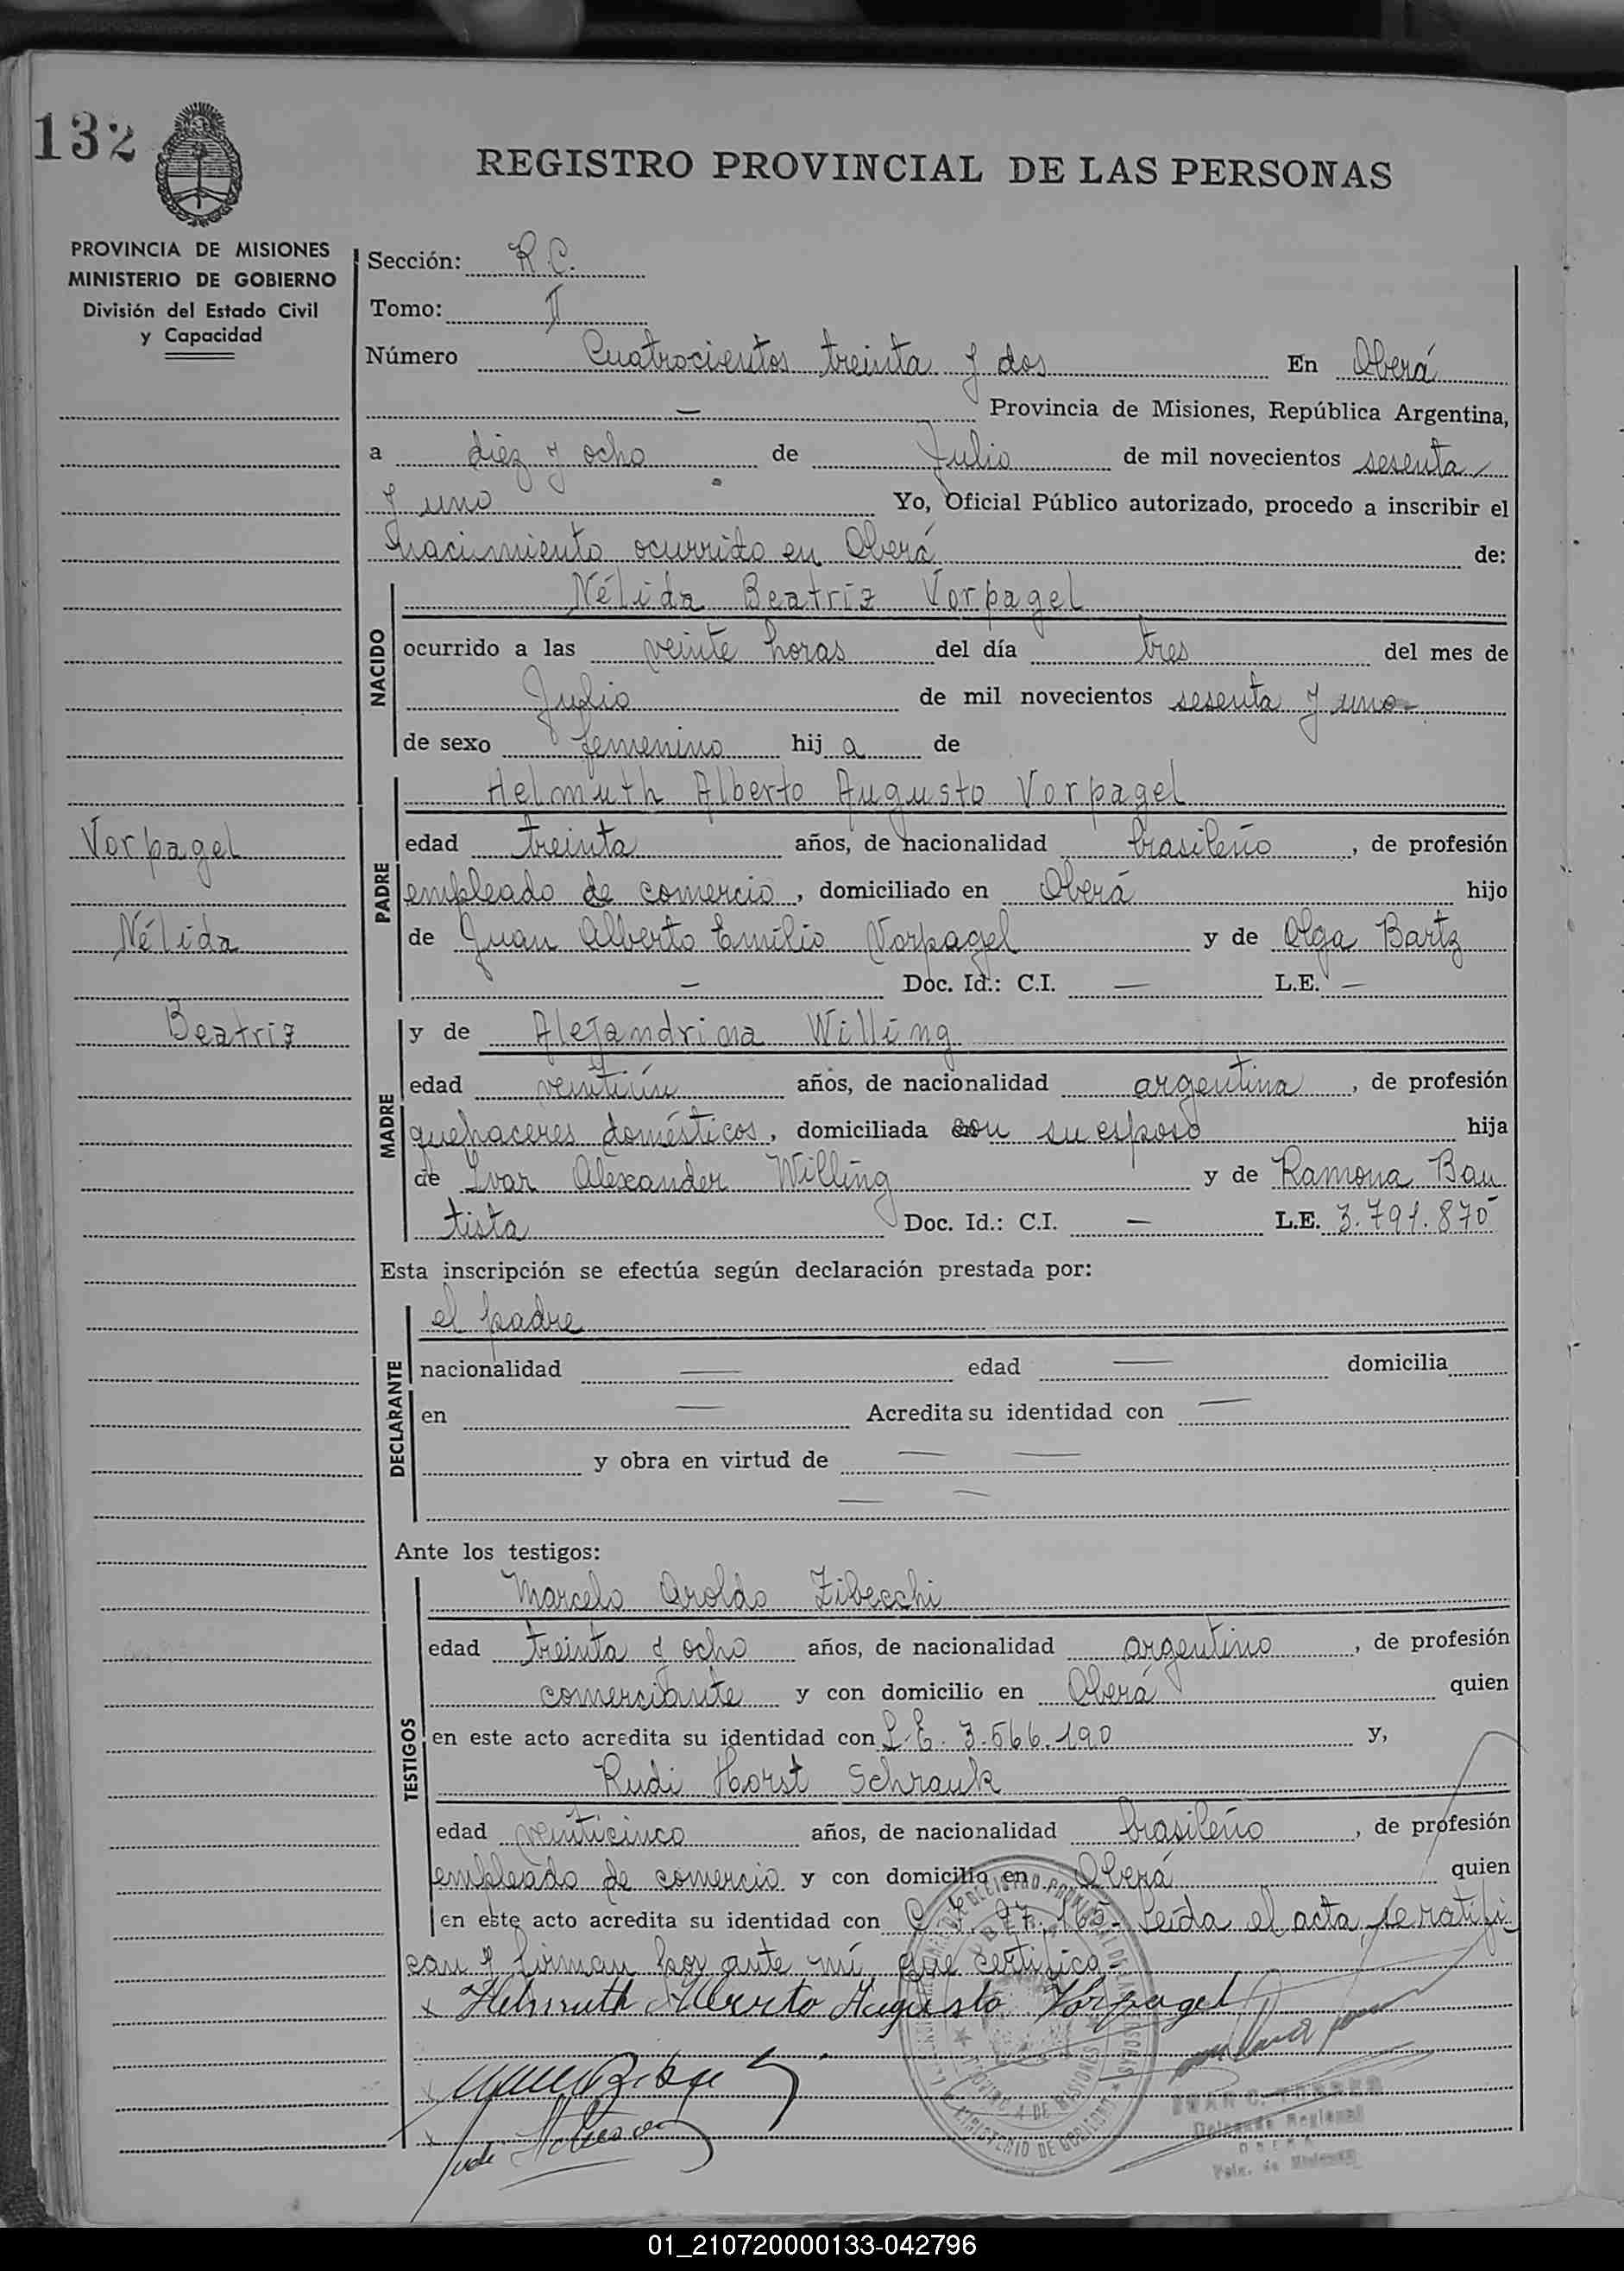 132
REGISTRO PROVINCIAL DE LAS PERSONAS
PROVINCIA DE MISIONES
MINISTERIO DE GOBIERNO
División del Estado Civil
y Capacidad
Sección: R.C.
Tomo: II
Número Cuatrocientos treinta y dos En Oberá
— Provincia de Misiones, República Argentina,
a diez y ocho de Julio de mil novecientos sesenta
y uno Yo, Oficial Público autorizado, procedo a inscribir el
nacimiento ocurrido en Oberá de:
NACIDO
Nélida Beatriz Vorpagel
ocurrido a las veinte horas del día tres del mes de
Julio de mil novecientos sesenta y uno
de sexo femenino hija de
PADRE
Helmuth Alberto Augusto Vorpagel
Vorpagel
edad treinta años, de nacionalidad brasileño, de profesión
empleado de comercio, domiciliado en Oberá hijo
Nélida
de Juan Alberto Emilio Vorpagel y de Olga Bartz
— Doc. Id.: C.I. — L.E. —
Beatriz
MADRE
y de Alejandrina Willing
edad veintiún años, de nacionalidad argentina, de profesión
quehaceres domésticos, domiciliada con su esposo hija
de Ivar Alexander Willing y de Ramona Bau
tista Doc. Id.: C.I. — L.E. 3.791.870
Esta inscripción se efectúa según declaración prestada por:
DECLARANTE
el padre
nacionalidad — edad — domicilia
en — Acredita su identidad con —
y obra en virtud de — —
— —
Ante los testigos:
TESTIGOS
Marcelo Aroldo Zibecchi
edad treinta y ocho años, de nacionalidad argentino, de profesión
comerciante y con domicilio en Oberá quien
en este acto acredita su identidad con L.E. 3.566.190 y,
Rudi Horst Schrauk
edad veinticinco años, de nacionalidad brasileño, de profesión
empleado de comercio y con domicilio en Oberá quien
en este acto acredita su identidad con C.I. 27.165- Leída el acta, se ratifi
can y firman por ante mí que certifico-
x Helmuth Alberto Augusto Vorpagel
Delegado Regional
01_210720000133-042796